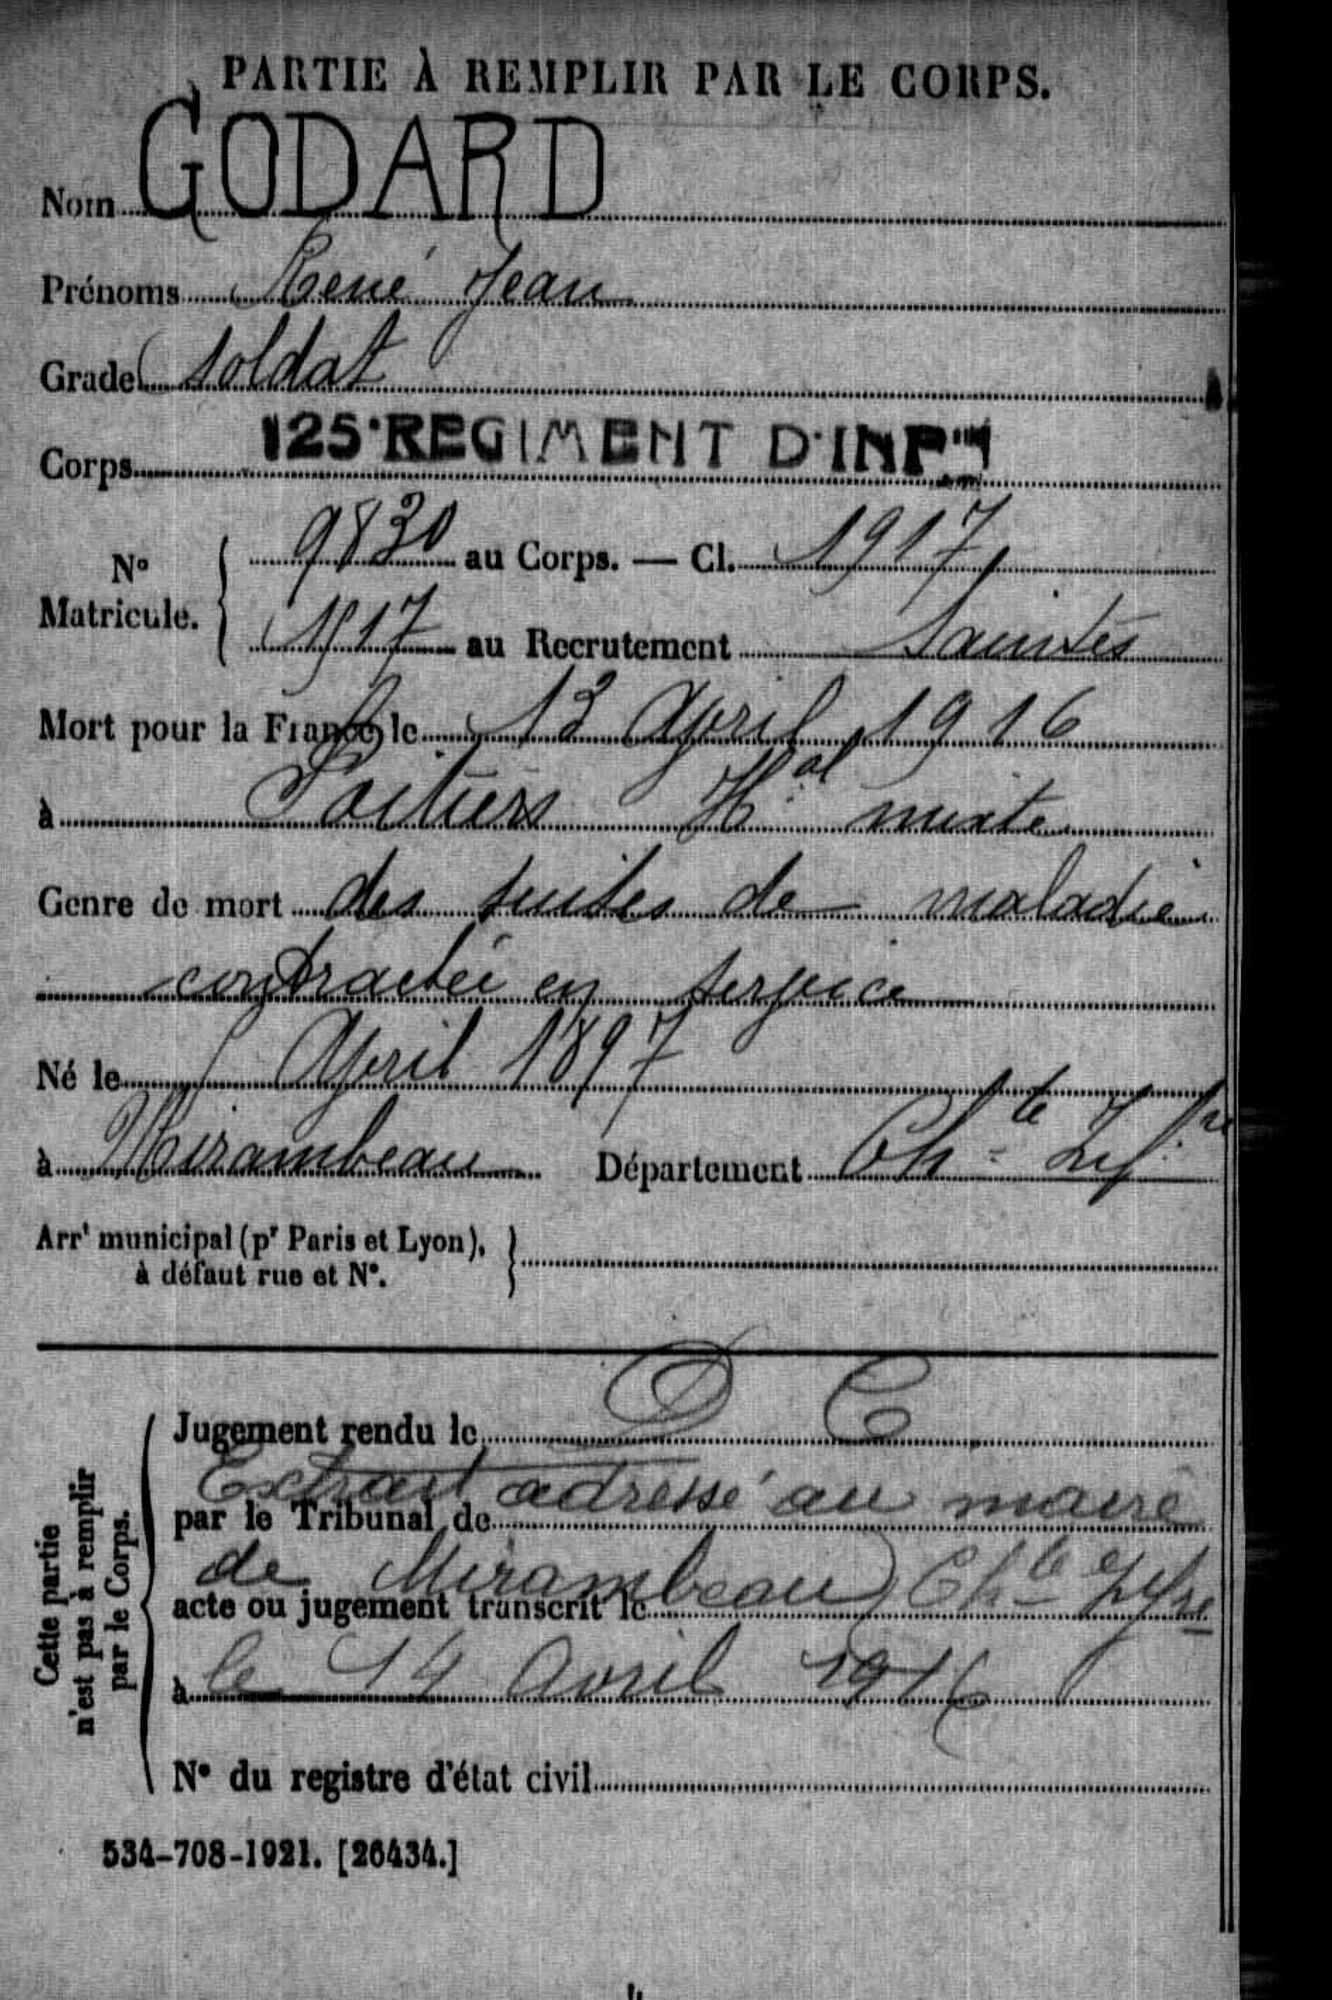 PARTIE À REMPLIR PAR LE CORPS.
Nom GODARD
Prénoms René Jean
Grade soldat
Corps 125e REGIMENT D'INFie
No Matricule. 9830 au Corps. — Cl. 1917
1917 au Recrutement Saintes
Mort pour la France le 13 Avril 1916
à Poitiers H.al mixte
Genre de mort des suites de maladie
contractée en service
Né le Avril 1897
à Mirambeau Département Ch-te Inf.re
Arrt municipal (pr Paris et Lyon),
à défaut rue et N°.
Cette partie
n'est pas à remplir
par le Corps.
D C
Jugement rendu le
Extrait adressé au maire
par le Tribunal de
de Mirambeau Ch-te Infre
acte ou jugement transcrit le
à le 14 Avril 1916
N° du registre d'état civil
534-708-1921. [26434.]